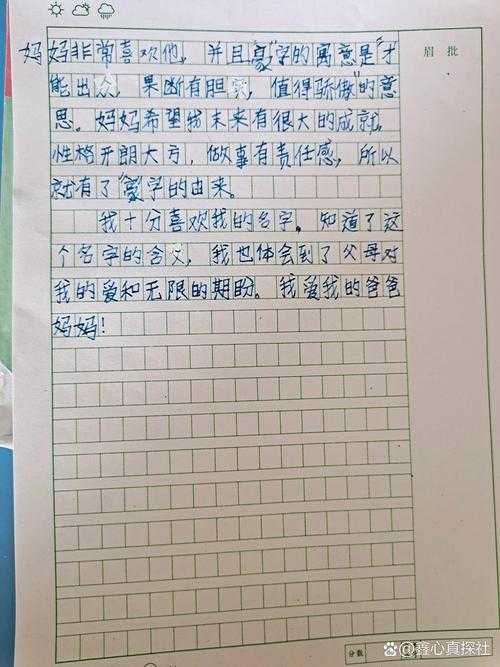 眉批
妈妈非常喜欢他，并且“豪”字的寓意是“才
能出众，果断有胆识，值得骄傲”的意
思。妈妈希望我未来有很大的成就，
性格开朗大方，做事有责任感，所以
就有了“豪”字的由来。
我十分喜欢我的名字，知道了这
个名字的含义，我也体会到了父母对
我的爱和无限的期盼。我爱我的爸爸
妈妈！
分数
鑫心真探社